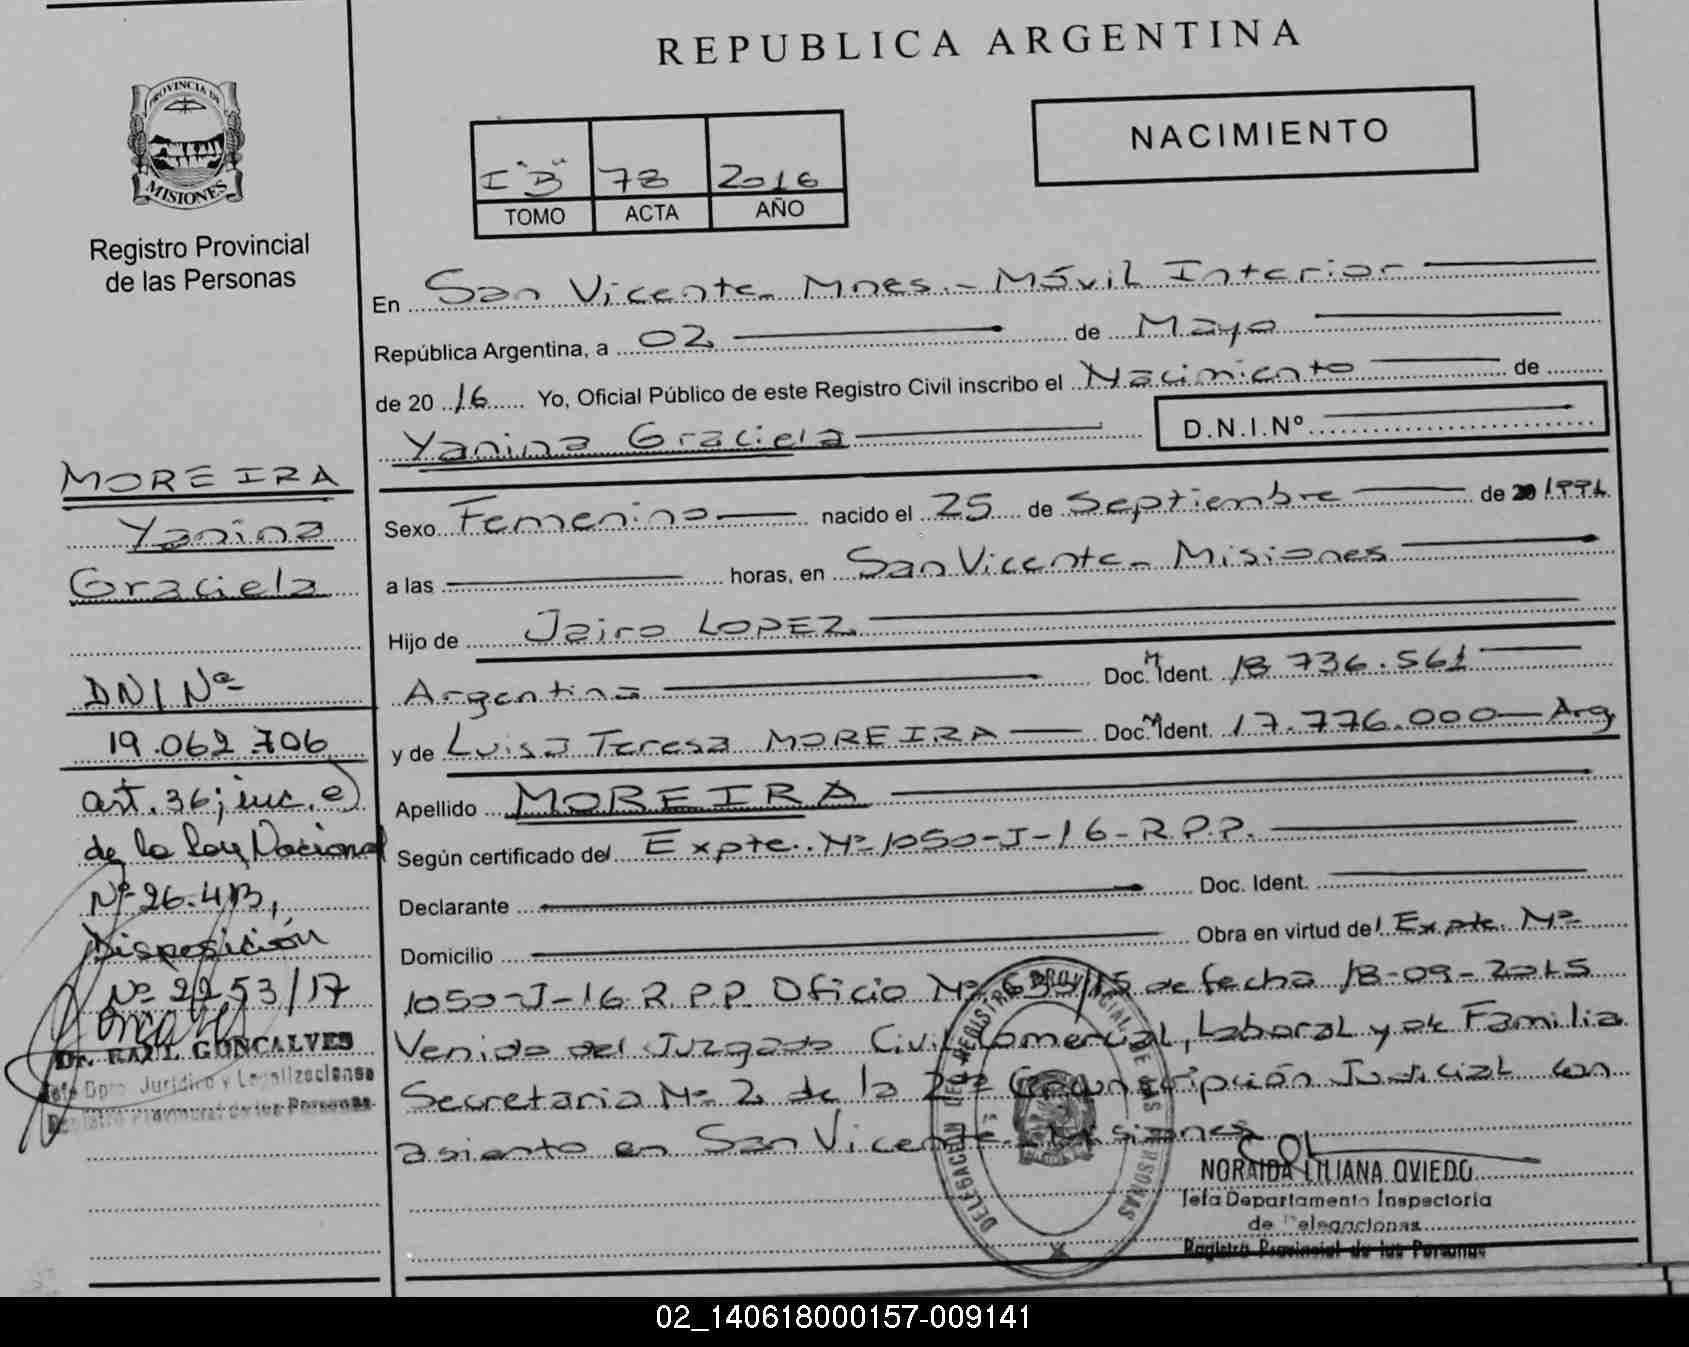 REPUBLICA ARGENTINA
PROVINCIA DE
MISIONES
Registro Provincial
de las Personas
I "B" 78 2016
TOMO ACTA AÑO
NACIMIENTO
En San Vicente - Mnes. - Móvil Interior
República Argentina, a 02 de Mayo
de 2016 Yo, Oficial Público de este Registro Civil inscribo el Nacimiento de
Yanina Graciela
D.N.I.Nº
Sexo Femenino nacido el 25 de Septiembre de 20 1991
a las horas, en San Vicente - Misiones
Hijo de Jairo LOPEZ
Argentina Doc. M Ident. 18.736.561
y de Luisa Teresa MOREIRA Doc. M Ident. 17.776.000 Arg
Apellido MOREIRA
Según certificado del Expte. Nº 1050-J-16-R.P.P.
Declarante Doc. Ident.
Domicilio Obra en virtud del Expte. Nº
1050-J-16 R.P.P. Oficio Nº de fecha 18-09-2015
Venido del Juzgado Civil, Comercial, Laboral y de Familia
Secretaria Nº 2 de la 2da Circunscripción Judicial con
asiento en San Vicente - Misiones
NORAIDA LILIANA OVIEDO
Jefa Departamento Inspectoria
de Delegaciones
Registro Provincial de las Personas
MOREIRA
Yanina
Graciela
DNI Nº
19.062.706
art. 36; inc. e)
de la Ley Nacional
Nº 26.413,
Disposición
Nº 2253/17
Dr. RAUL GONCALVES
Jefe Dpto. Jurídico y Legalizaciones
Registro Provincial de las Personas
02_140618000157-009141